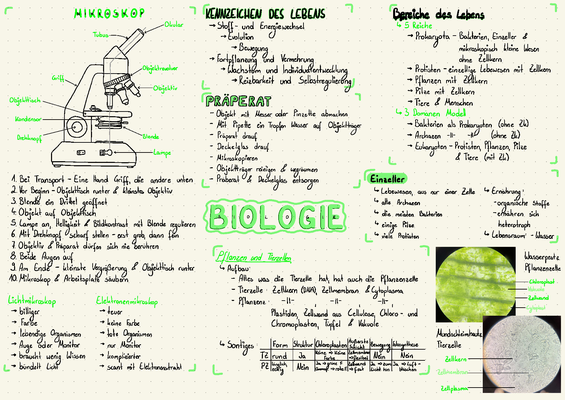 MIKROSKOP
Okular
Tubus
Objektrevolver
Griff
Objektiv
Objekttisch
Kondensor
Drehknopf
Blende
Lampe
1. Bei Transport - Eine Hand Griff, die andere unten
2. Vor Beginn - Objekttisch runter & kleinste Objektiv
3. Blende ein Drittel geöffnet
4. Objekt auf Objekttisch
5. Lampe an, Helligkeit & Bildkontrast mit Blende regulieren
6. Mit Drehknopf scharf stellen - erst grob dann fein
7. Objektiv & Präparat dürfen sich nie berühren
8. Beide Augen auf
9. Am Ende - kleinste Vergrößerung & Objekttisch runter
10. Mikroskop & Arbeitsplatz säubern
Lichtmikroskop
→ billiger
→ Farbe
→ lebendige Organismen
→ Auge oder Monitor
→ braucht wenig Wissen
→ bündelt Licht
Elektronenmikroskop
→ teuer
→ keine Farbe
→ tote Organismen
→ nur Monitor
→ komplizierter
→ scant mit Elektronenstrahl
KENNZEICHEN DES LEBENS
→ Stoff- und Energiewechsel
→ Evolution
→ Bewegung
→ Fortpflanzung und Vermehrung
→ Wachstum und Individualentwicklung
→ Reizbarkeit und Selbstregulierung
PRÄPERAT
- Objekt mit Messer oder Pinzette abmachen
- Mit Pipette ein Tropfen Wasser auf Objektträger
- Präparat drauf
- Deckelglas drauf
- Mikroskopieren
- Objektträger reinigen & wegräumen
- Präparat & Deckelglas entsorgen
BIOLOGIE
Pflanzen und Tierzellen
↳ Aufbau:
- Alles was die Tierzelle hat, hat auch die Pflanzenzelle
- Tierzelle: Zellkern (DNA), Zellmembran & Cytoplasma
- Pflanzene: -II- , -II- , -II- ,
Plastiden, Zellwand aus Cellulose, Chloro- und
Chromoplasten, Tüpfel & Vakuole
↳ Sontiges:
Form Struktur Chloroplasten Bewegung
TZ rund Ja Nein
PZ Nein
Bereiche des Lebens
↳ 5 Reiche
→ Prokaryota - Bakterien, Einzeller &
mikroskopisch kleine Wesen
ohne Zellkern
→ Protisten - einzellige Lebewesen mit Zellkern
→ Pflanzen mit Zellkern
→ Pilze mit Zellkern
→ Tiere & Menschen
↳ 3 Domänen Modell
→ Bakterien als Prokaryoten (ohne Zk)
→ Archaeen -II- (ohne Zk)
→ Eukaryoten - Protisten, Pflanzen, Pilze
& Tiere (mit Zk)
Einzeller
↳ Lebewesen, aus nur einer Zelle
↳ alle Archaeen
↳ die meisten Bakterien
↳ einige Pilze
↳ viele Protisten
↳ Ernährung:
- organische Stoffe
- ernähren sich
heterotroph
↳ Lebensraum - Wasser
Wasserpest
Pflanzenzelle
Chloroplast
Vakuole
Zellwand
Cytoplasma
Mundschleimhaut
Tierzelle
Zellkern
Zellmembran
Zellplasma